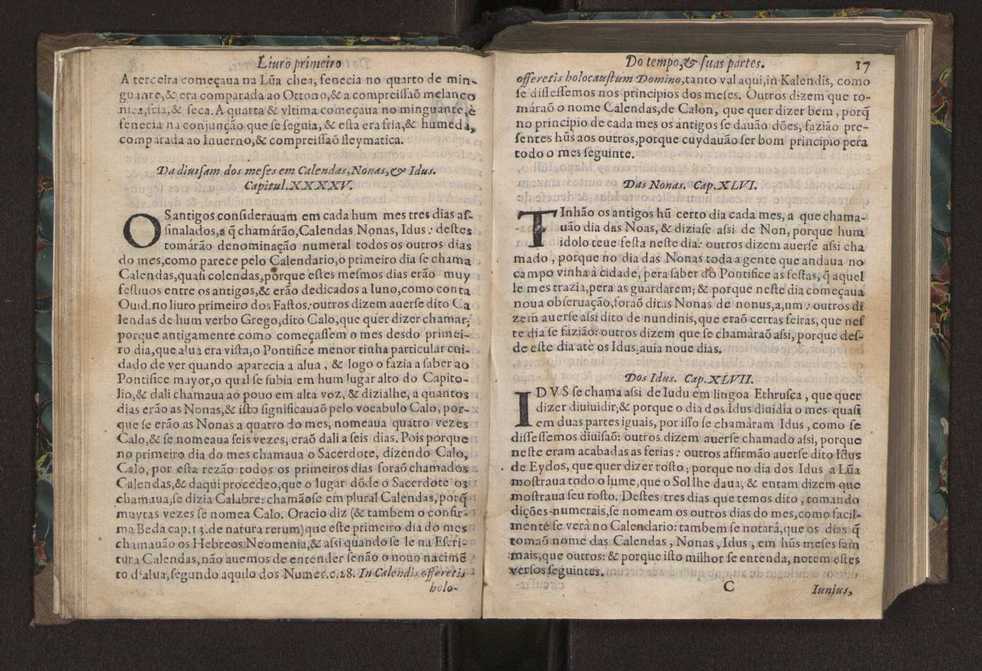 Liuro primeiro
A terceira começaua na Lũa chea, fenecia no quarto de min-
guante, & era comparada ao Ottono, & a compreissaõ melanco
nica, fria, & seca. A quarta & vltima começaua no minguante, è
fenecia na conjunção que se seguia, & esta era fria, & humeda,
comparada ao Inuerno, & compreissaõ fleymatica.
Da diuisam dos meses em Calendas, Nonas, & Idus.
Capitul. XXXXV.
OS antigos considerauam em cada hum mes tres dias as-
sinalados, a q̃ chamárão, Calendas Nonas, Idus: destes
tomárão denominação numeral todos os outros dias
do mes, como parece pelo Calendario, o primeiro dia se chama
Calendas, quasi colendas, porque estes mesmos dias erão muy
festiuos entre os antigos, & erão dedicados a Iuno, como conta
Ouid. no liuro primeiro dos Fastos: outros dizem auerse dito Ca
lendas de hum verbo Grego, dito Calo, que quer dizer chamar;
porque antigamente como começassem o mes desdo primei-
ro dia, que a lua era vista, o Pontifice menor tinha particular cui-
dado de ver quando aparecia a alua, & logo o fazia a saber ao
Pontifice mayor, o qual se subia em hum lugar alto do Capito-
lio, & dali chamaua ao pouo em alta voz, & dizialhe, a quantos
dias erão as Nonas, & isto significauaõ pelo vocabulo Calo, por-
que se erão as Nonas a quatro do mes, nomeaua quatro vezes
Calo, & se nomeaua seis vezes, eraõ dali a seis dias. Pois porque
no primeiro dia do mes chamaua o Sacerdote, dizendo Calo,
Calo, por esta rezão todos os primeiros dias foraõ chamados
Calendas, & daqui procedeo, que o lugar dõde o Sacerdote os
chamaua, se dizia Calabre: chamãose em plural Calendas, porq̃
muytas vezes se nomea Calo. Oracio diz (& tambem o confir-
ma Beda cap. 13. de natura rerum) que este primeiro dia do mes
chamauão os Hebreos Neomenia, & assi quando se le na Escri-
tura Calendas, não auemos de entender senão o nouo nacimẽ
to d'alua, segundo aquilo dos Numer. c. 28. In Calendis offeretis
holo-
Do tempo, & suas partes. 17
offeretis holocaustum Domino, tanto val aqui, in Kalendis, como
se dissessemos nos principios dos meses. Outros dizem que to-
máraõ o nome Calendas, de Calon, que quer dizer bem, porq̃
no principio de cada mes os antigos se dauão dões, fazião pre-
sentes hũs aos outros, porque cuydauão ser bom principio pera
todo o mes seguinte.
Das Nonas. Cap. XLVI.
TInhão os antigos hũ certo dia cada mes, a que chama-
uão dia das Noas, & diziase assi de Non, porque hum
idolo teue festa neste dia: outros dizem auerse assi cha
mado, porque no dia das Nonas toda a gente que andaua no
campo vinha à cidade, pera saber do Pontifice as festas, q̃ aquel
le mes trazia, pera as guardarem; & porque neste dia começaua
noua obseruação, foraõ ditas Nonas de nonus, a, um: outros di
zem auerse assi dito de nundinis, que eraõ certas feiras, que nes
te dia se fazião: outros dizem que se chamàraõ assi, porque des-
de este dia atè os Idus, auia noue dias.
Dos Idus. Cap. XLVII.
IDVS se chama assi de Iudu em lingoa Ethrusca, que quer
dizer diuiuidir, & porque o dia dos Idus diuidia o mes quasi
em duas partes iguais, por isso se chamàram Idus, como se
dissessemos diuisaõ: outros dizem auerse chamado assi, porque
neste eram acabadas as ferias: outros affirmão auerse dito Idus
de Eydos, que quer dizer rosto; porque no dia dos Idus a Lũa
mostraua todo o lume, que o Sol lhe daua, & entam dizem que
mostraua seu rosto. Destes tres dias que temos dito, tomando
dições numerais, se nomeam os outros dias do mes, como facil-
mente se verà no Calendario: tambem se notará, que os dias q̃
tomaõ nome das Calendas, Nonas, Idus, em hũs meses sam
mais, que outros: & porque isto milhor se entenda, notem estes
versos seguintes.
C Iunius,